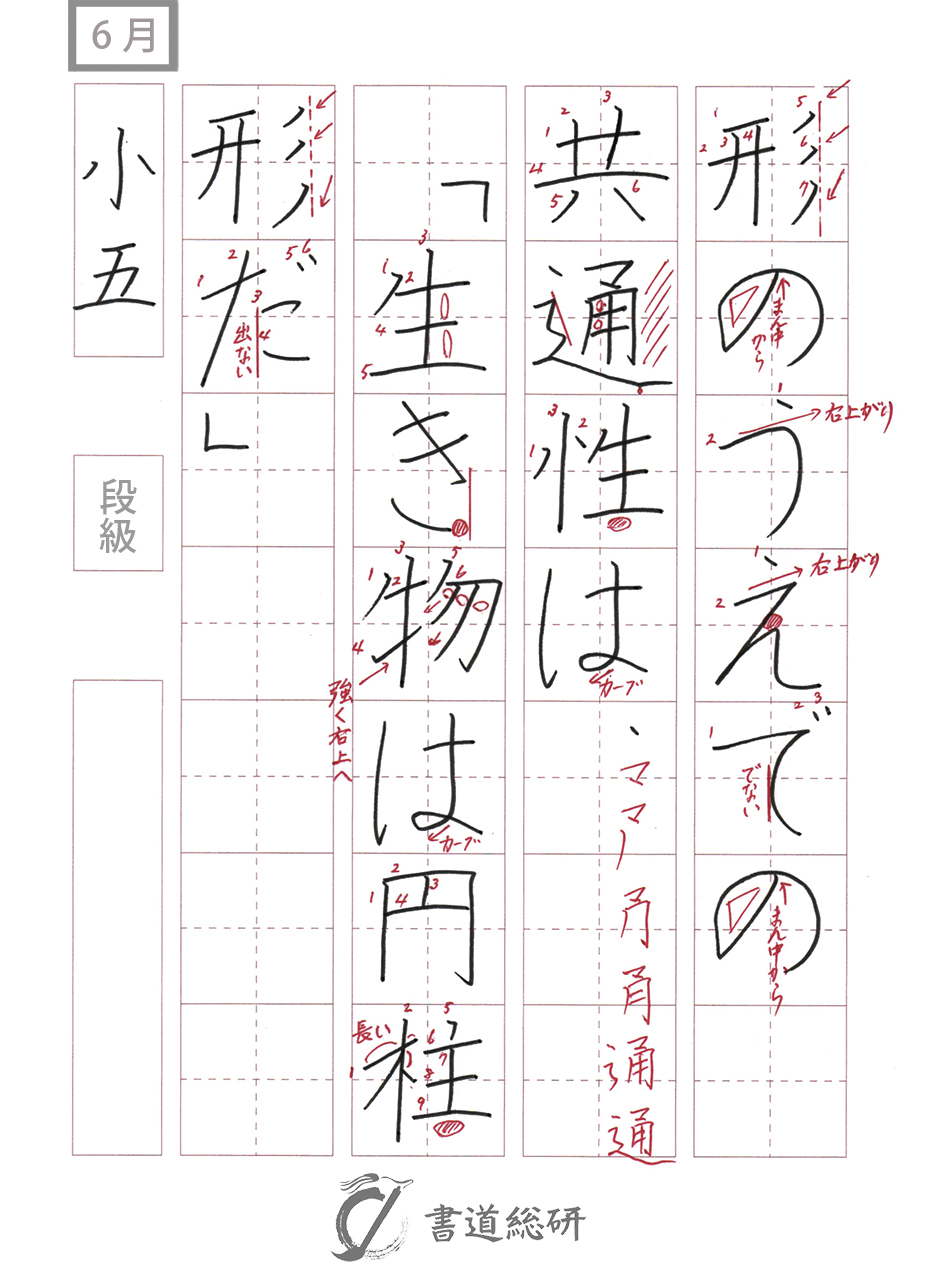 6月
形のうえでの
共通性は
「生き物は円柱
形だ」
小五
段級
右上がり
右上がり
まん中から
でない
まん中から
カーブ
、ママ丿
通通
強く右上へ
カーブ
長い
出ない
書道総研